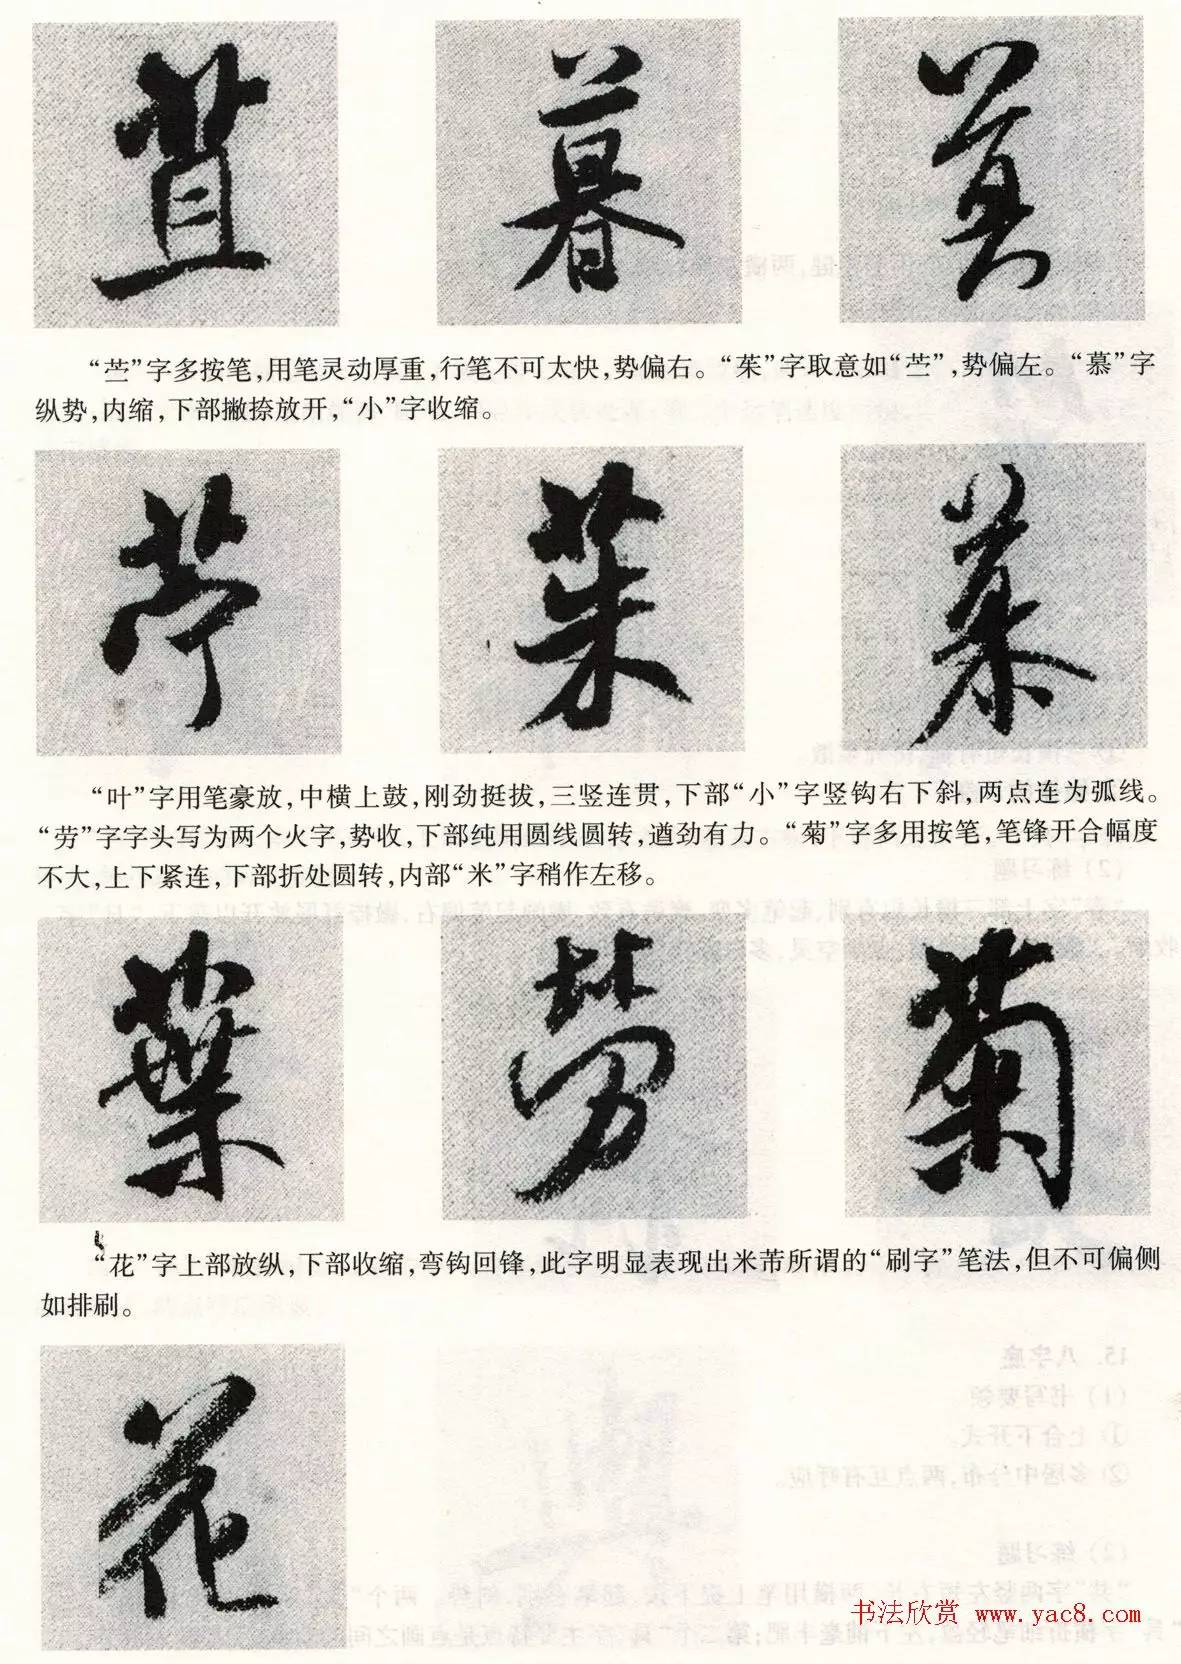 苴 暮 莫
“苎”字多按笔,用笔灵动厚重,行笔不可太快,势偏右。“茱”字取意如“苎”,势偏左。“慕”字
纵势,内缩,下部撇捺放开,“小”字收缩。
苧 茱 慕
“叶”字用笔豪放,中横上鼓,刚劲挺拔,三竖连贯,下部“小”字竖钩右下斜,两点连为弧线。
“劳”字字头写为两个火字,势收,下部纯用圆线圆转,遒劲有力。“菊”字多用按笔,笔锋开合幅度
不大,上下紧连,下部折处圆转,内部“米”字稍作左移。
葉 勞 菊
“花”字上部放纵,下部收缩,弯钩回锋,此字明显表现出米芾所谓的“刷字”笔法,但不可偏侧
如排刷。
花
书法欣赏 www.yac8.com